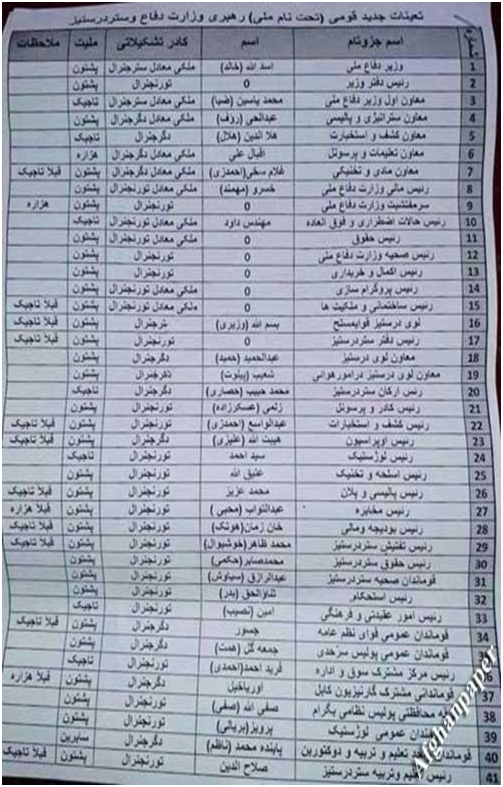 تعینات جدید قومی (تحت نام ملی) رهبری وزارت دفاع وستردرستیز
شماره اسم جزوتام اسم کادر تشکیلاتی ملیت ملاحظات
1 وزیر دفاع ملی اسد الله (خالد) ملکی معادل سترجنرال پشتون
2 رئیس دفتر وزیر 0 تورنجنرال پشتون
3 معاون اول وزیر دفاع ملی محمد یاسین (ضیا) ملکی معادل سترجنرال تاجیک
4 معاون ستراتیژی و پالیسی عبدالحی (رؤف) ملکی معادل دگرجنرال پشتون
5 معاون کشف و استخبارت هلا الدین (هلال) دگرجنرال تاجیک
6 معاون تعلیمات و پرسونل اقبال علی ملکی معادل دگرجنرال هزاره
7 معاون مادی و تخنیکی غلام سخی(احمدزی) ملکی معادل دگرجنرال پشتون قبلا تاجیک
8 رئیس مالی وزارت دفاع ملی خسرو (مهمند) ملکی معادل تورنجنرال پشتون
9 سرمفتشیت وزارت دفاع ملی 0 تورنجنرال پشتون هزاره
10 رئیس حالات اضطراری و فوق العاده مهندس داود ملکی معادل تورنجنرال تاجیک
11 رئیس حقوق 0 ملکی معادل تورنجنرال پشتون
12 رئیس صحیه وزارت دفاع ملی 0 تورنجنرال پشتون
13 رئیس اکمال و خریداری 0 تورنجنرال پشتون
14 رئیس پروگرام سازی 0 ملکی معادل تورنجنرال پشتون
15 رئیس ساختمانی و ملکیت ها 0 ملکی معادل تورنجنرال پشتون قبلا تاجیک
16 لوی درستیز قوایمسلح بسم الله (وزیری) پشتون قبلا تاجیک
17 رئیس دفتر ستردرستیز 0 تورنجنرال پشتون قبلا تاجیک
18 معاون لوی درستیز عبدالحمید (حمید) دگرجنرال پشتون
19 معاون لوی درستیز درامورهوائی شعیب (پیلوت) دگرجنرال پشتون
20 رئس ارکان ستردرستیز محمد حبیب (حصاری) دگرجنرال تاجیک
21 رئیس کادر و پرسونل زلمی (عسکرزاده) تورنجنرال پشتون
22 رئیس کشف و استخبارات عبدالواسع (احمدزی) تورنجنرال پشتون قبلا تاجیک
23 رئیس اوپراسیون هیبت الله (علیزی) دگرجنرال پشتون قبلا تاجیک
24 رئیس لوژستیک سید احمد تورنجنرال تاجیک
25 رئیس اسلحه و تخنیک عتیق الله تورنجنرال پشتون
26 رئیس پالیسی و پلان محمد عزیز تورنجنرال پشتون قبلا تاجیک
27 رئیس مخابره عبدالتواب (محبی) تورنجنرال پشتون قبلا هزاره
28 رئیس بودیجه ومالی خان زمان(هوتک) تورنجنرال پشتون قبلا تاجیک
29 رئیس تفتیش ستردرستیز محمد ظاهر(خوشیوال) تورنجنرال پشتون قبلا تاجیک
30 رئیس حقوق ستردرستیز محمدصابر(حکمی) تورنجنرال پشتون
31 قوماندان صحیه ستردرستیز عبدالرازق (سیاوش) تورنجنرال پشتون
32 رئیس استحکام ثناؤالحق (بدر) تورنجنرال پشتون
33 رئیس امور عقیدتی و فرهنگی امین (نصیب) تورنجنرال تاجیک
34 قوماندان عمومی قوای نظم عامه جسور دگرجنرال پشتون قبلا تاجیک
قوماندان عمومی پولیس سرحدی جمعه گل (همت) دگرجنرال پشتون
رئیس مرکز مشترک سوق و اداره فرید احمد(احمدی) تورنجنرال پشتون
37 قوماندانی مشترک گارنیزیون کابل اوریاخیل دگرجنرال پشتون قبلا هزاره
38 محافظتی پولیس نظامی بگرام صفی الله (صفی) تورنجنرال پشتون
39 عمومی لوژستیک پرویز(بریالی) تورنجنرال پشتون
40 تعلیم و تربیه و دوکتورین پاینده محمد (ناظم) دگرجنرال سایرین
41 رئیس تعلیم وتربیه ستردرستیز صلاح الدین تورنجنرال پشتون قبلا تاجیک
Afghanpaper